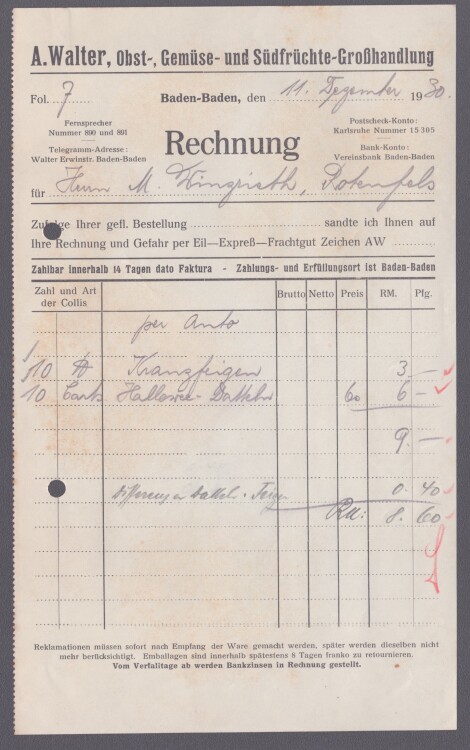 A. Walter, Obst-, Gemüse- und Südfrüchte-Großhandlung
Fol. 7 Baden-Baden, den 11. Dezember 1930.
Fernsprecher
Nummer 890 und 891
Telegramm-Adresse:
Walter Erwinstr. Baden-Baden
Rechnung
Postscheck-Konto:
Karlsruhe Nummer 15 305
Bank-Konto:
Vereinsbank Baden-Baden
für Herrn M. Rotenfels
Zufolge Ihrer gefl. Bestellung sandte ich Ihnen auf
Ihre Rechnung und Gefahr per Eil—Expreß—Frachtgut Zeichen AW
Zahlbar innerhalb 14 Tagen dato Faktura - Zahlungs- und Erfüllungsort ist Baden-Baden
Zahl und Art der Collis Brutto Netto Preis RM. Pfg.
per Auto
10 ℔ Kranzfeigen 3. —
10 Cart. Datteln 60 6 —
9. —
Differenz a Dattel. 0. 40
RM: 8. 60
Reklamationen müssen sofort nach Empfang der Ware gemacht werden, später werden dieselben nicht
mehr berücksichtigt. Emballagen sind innerhalb spätestens 8 Tagen franko zu retournieren.
Vom Verfalltage ab werden Bankzinsen in Rechnung gestellt.